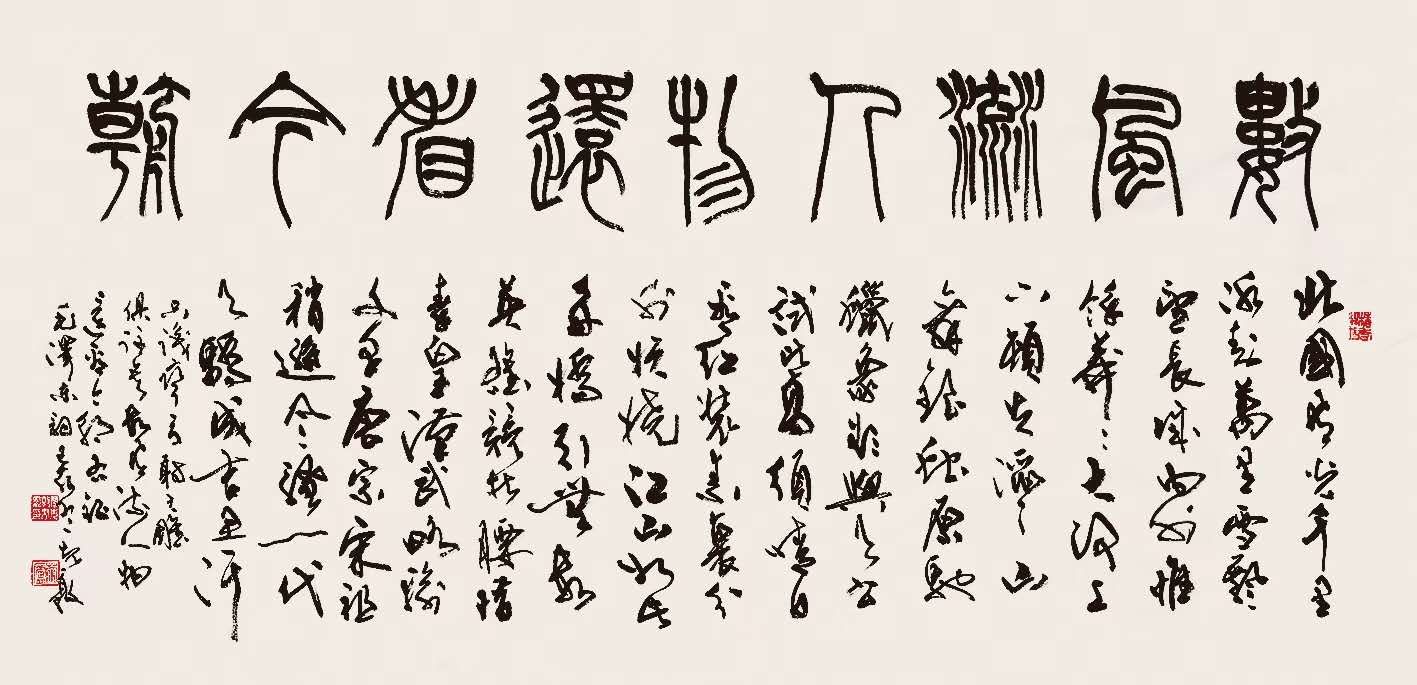 數風流人物還看今朝
北國風光千里
冰封萬里雪飄
望長城內外惟
餘莽〻大河上
下頓失滔〻山
舞銀蛇原馳
蠟象欲與天公
試比高須晴日
看紅裝素裹分
外妖嬈江山如此
多嬌引無數
英雄競折腰惜
秦皇漢武略輸
文采唐宗宋祖
稍遜風騷一代
天驕成吉思汗
只識彎弓射大雕
俱往矣數風流人物
還看今朝
毛澤東詞